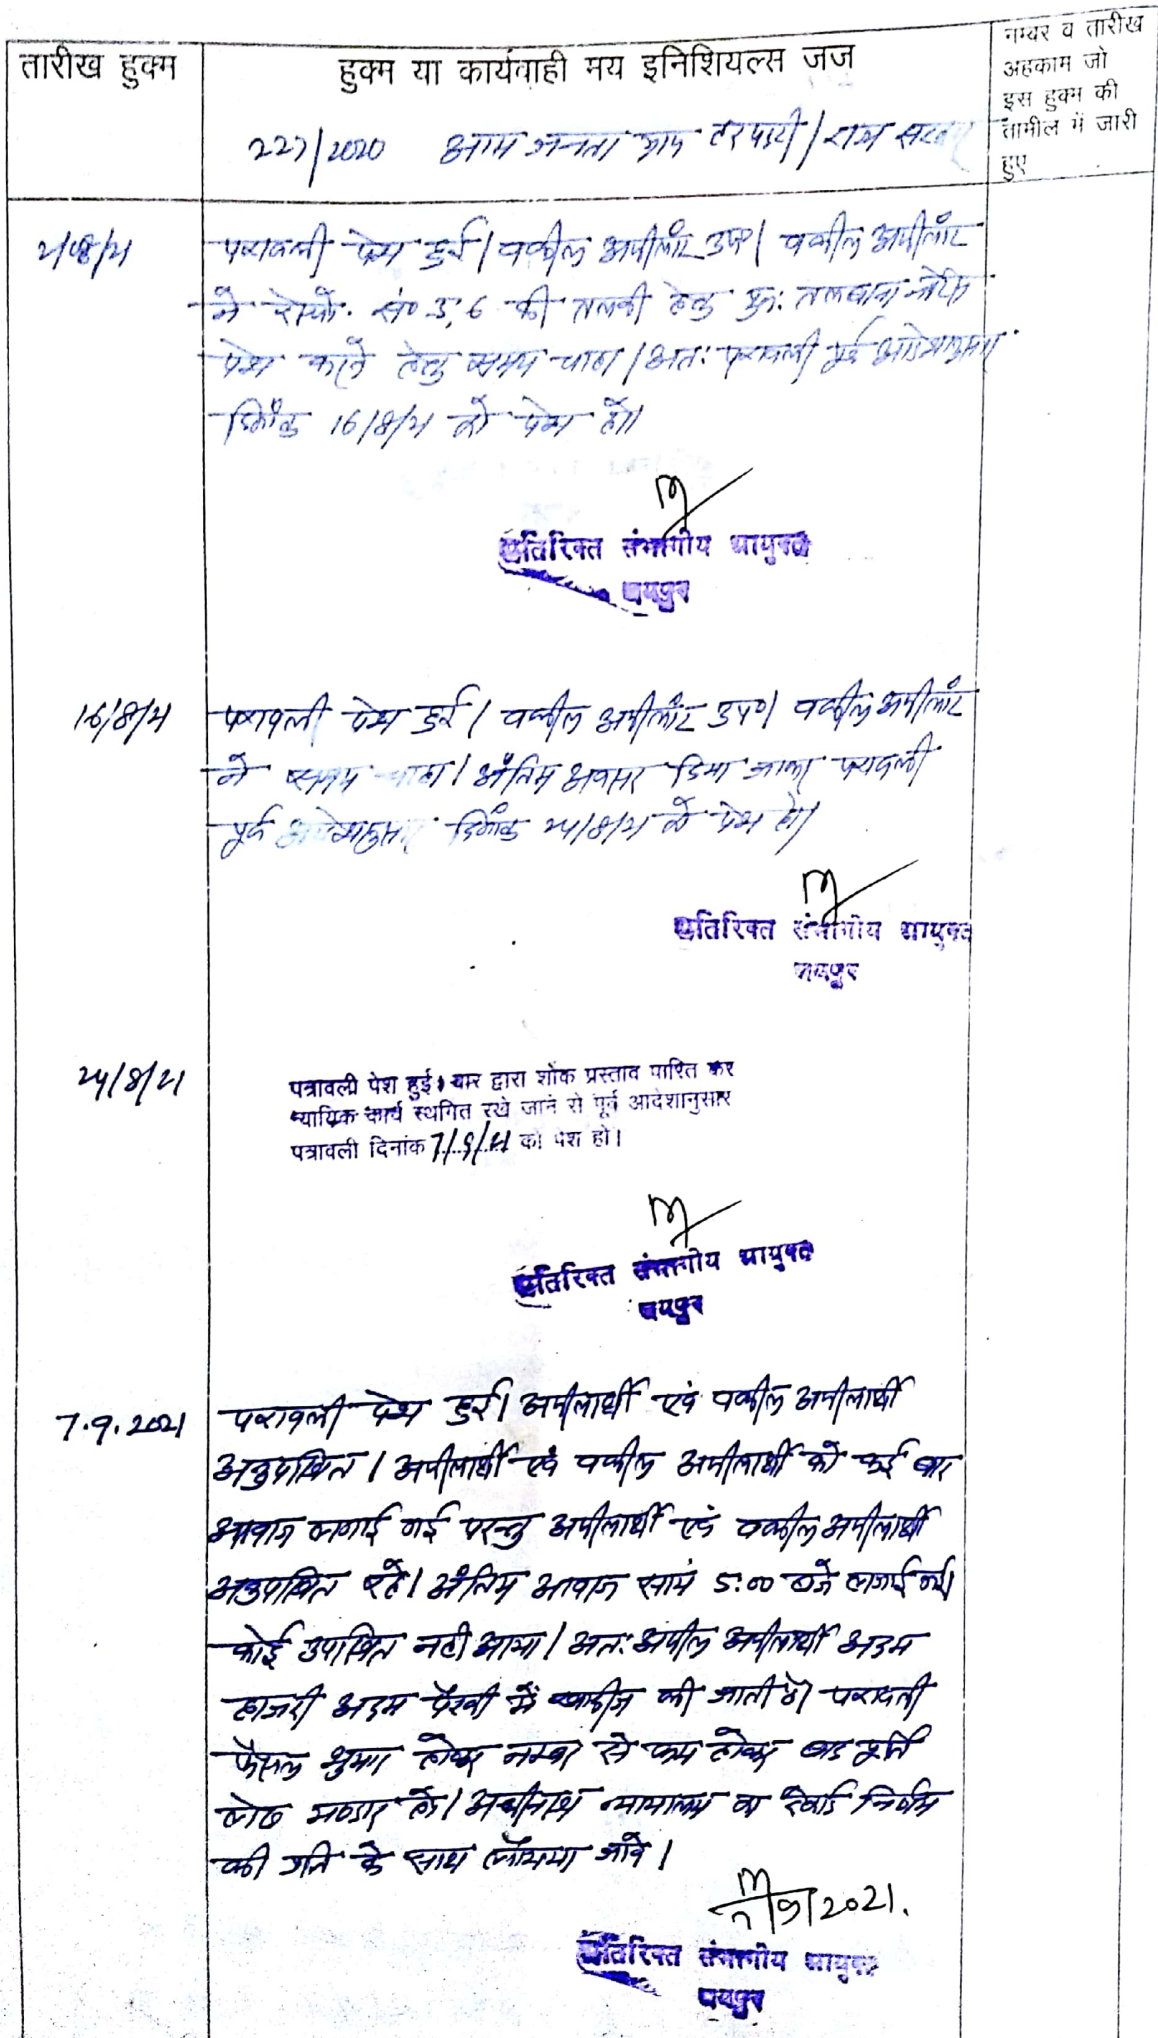 तारीख हुक्म
हुक्म या कार्यवाही मय इनिशियल्स जज
नम्बर व तारीख
अहकाम जो
इस हुक्म की
तामील में जारी
हुए
227/2020 आम जनता ग्राम / राज सरकार
2/8/21
पत्रावली पेश हुई। वकील अपीलांट उप०। वकील अपीलांट
ने रेस्पो. सं० 5, 6 की तलबी हेतु पुन: तलबाना नोटिस
पेश करने हेतु समय चाहा। अत: पत्रावली पूर्व आदेशानुसार
दिनांक 16/8/21 को पेश हो।
अतिरिक्त संभागीय आयुक्त
जयपुर
16/8/21
पत्रावली पेश हुई। वकील अपीलांट उप०। वकील अपीलांट
ने समय चाहा। अंतिम अवसर दिया जाकर पत्रावली
पूर्व आदेशानुसार दिनांक 24/8/21 को पेश हो।
अतिरिक्त संभागीय आयुक्त
जयपुर
24/8/21
पत्रावली पेश हुई। बार द्वारा शोक प्रस्ताव पारित कर
न्यायिक कार्य स्थगित रखे जाने से पूर्व आदेशानुसार
पत्रावली दिनांक 7/9/21 को पेश हो।
अतिरिक्त संभागीय आयुक्त
जयपुर
7.9.2021
पत्रावली पेश हुई। अपीलार्थी एवं वकील अपीलार्थी
अनुपस्थित। अपीलार्थी एवं वकील अपीलार्थी को कई बार
आवाज लगाई गई परन्तु अपीलार्थी एवं वकील अपीलार्थी
अनुपस्थित रहे। अंतिम आवाज सायं 5:00 बजे लगाई गई।
कोई उपस्थित नही आया। अत: अपील अपीलार्थी अदम
हाजरी अदम पैरवी में खारीज की जाती है। पत्रावली
फैसल शुमार होकर नम्बर से कम होकर बाद पूर्ति
लेख भण्डार हो। अधीनस्थ न्यायालय का रेकार्ड निर्णय
की प्रति के साथ लौटाया जावे।
7/9/2021.
अतिरिक्त संभागीय आयुक्त
जयपुर